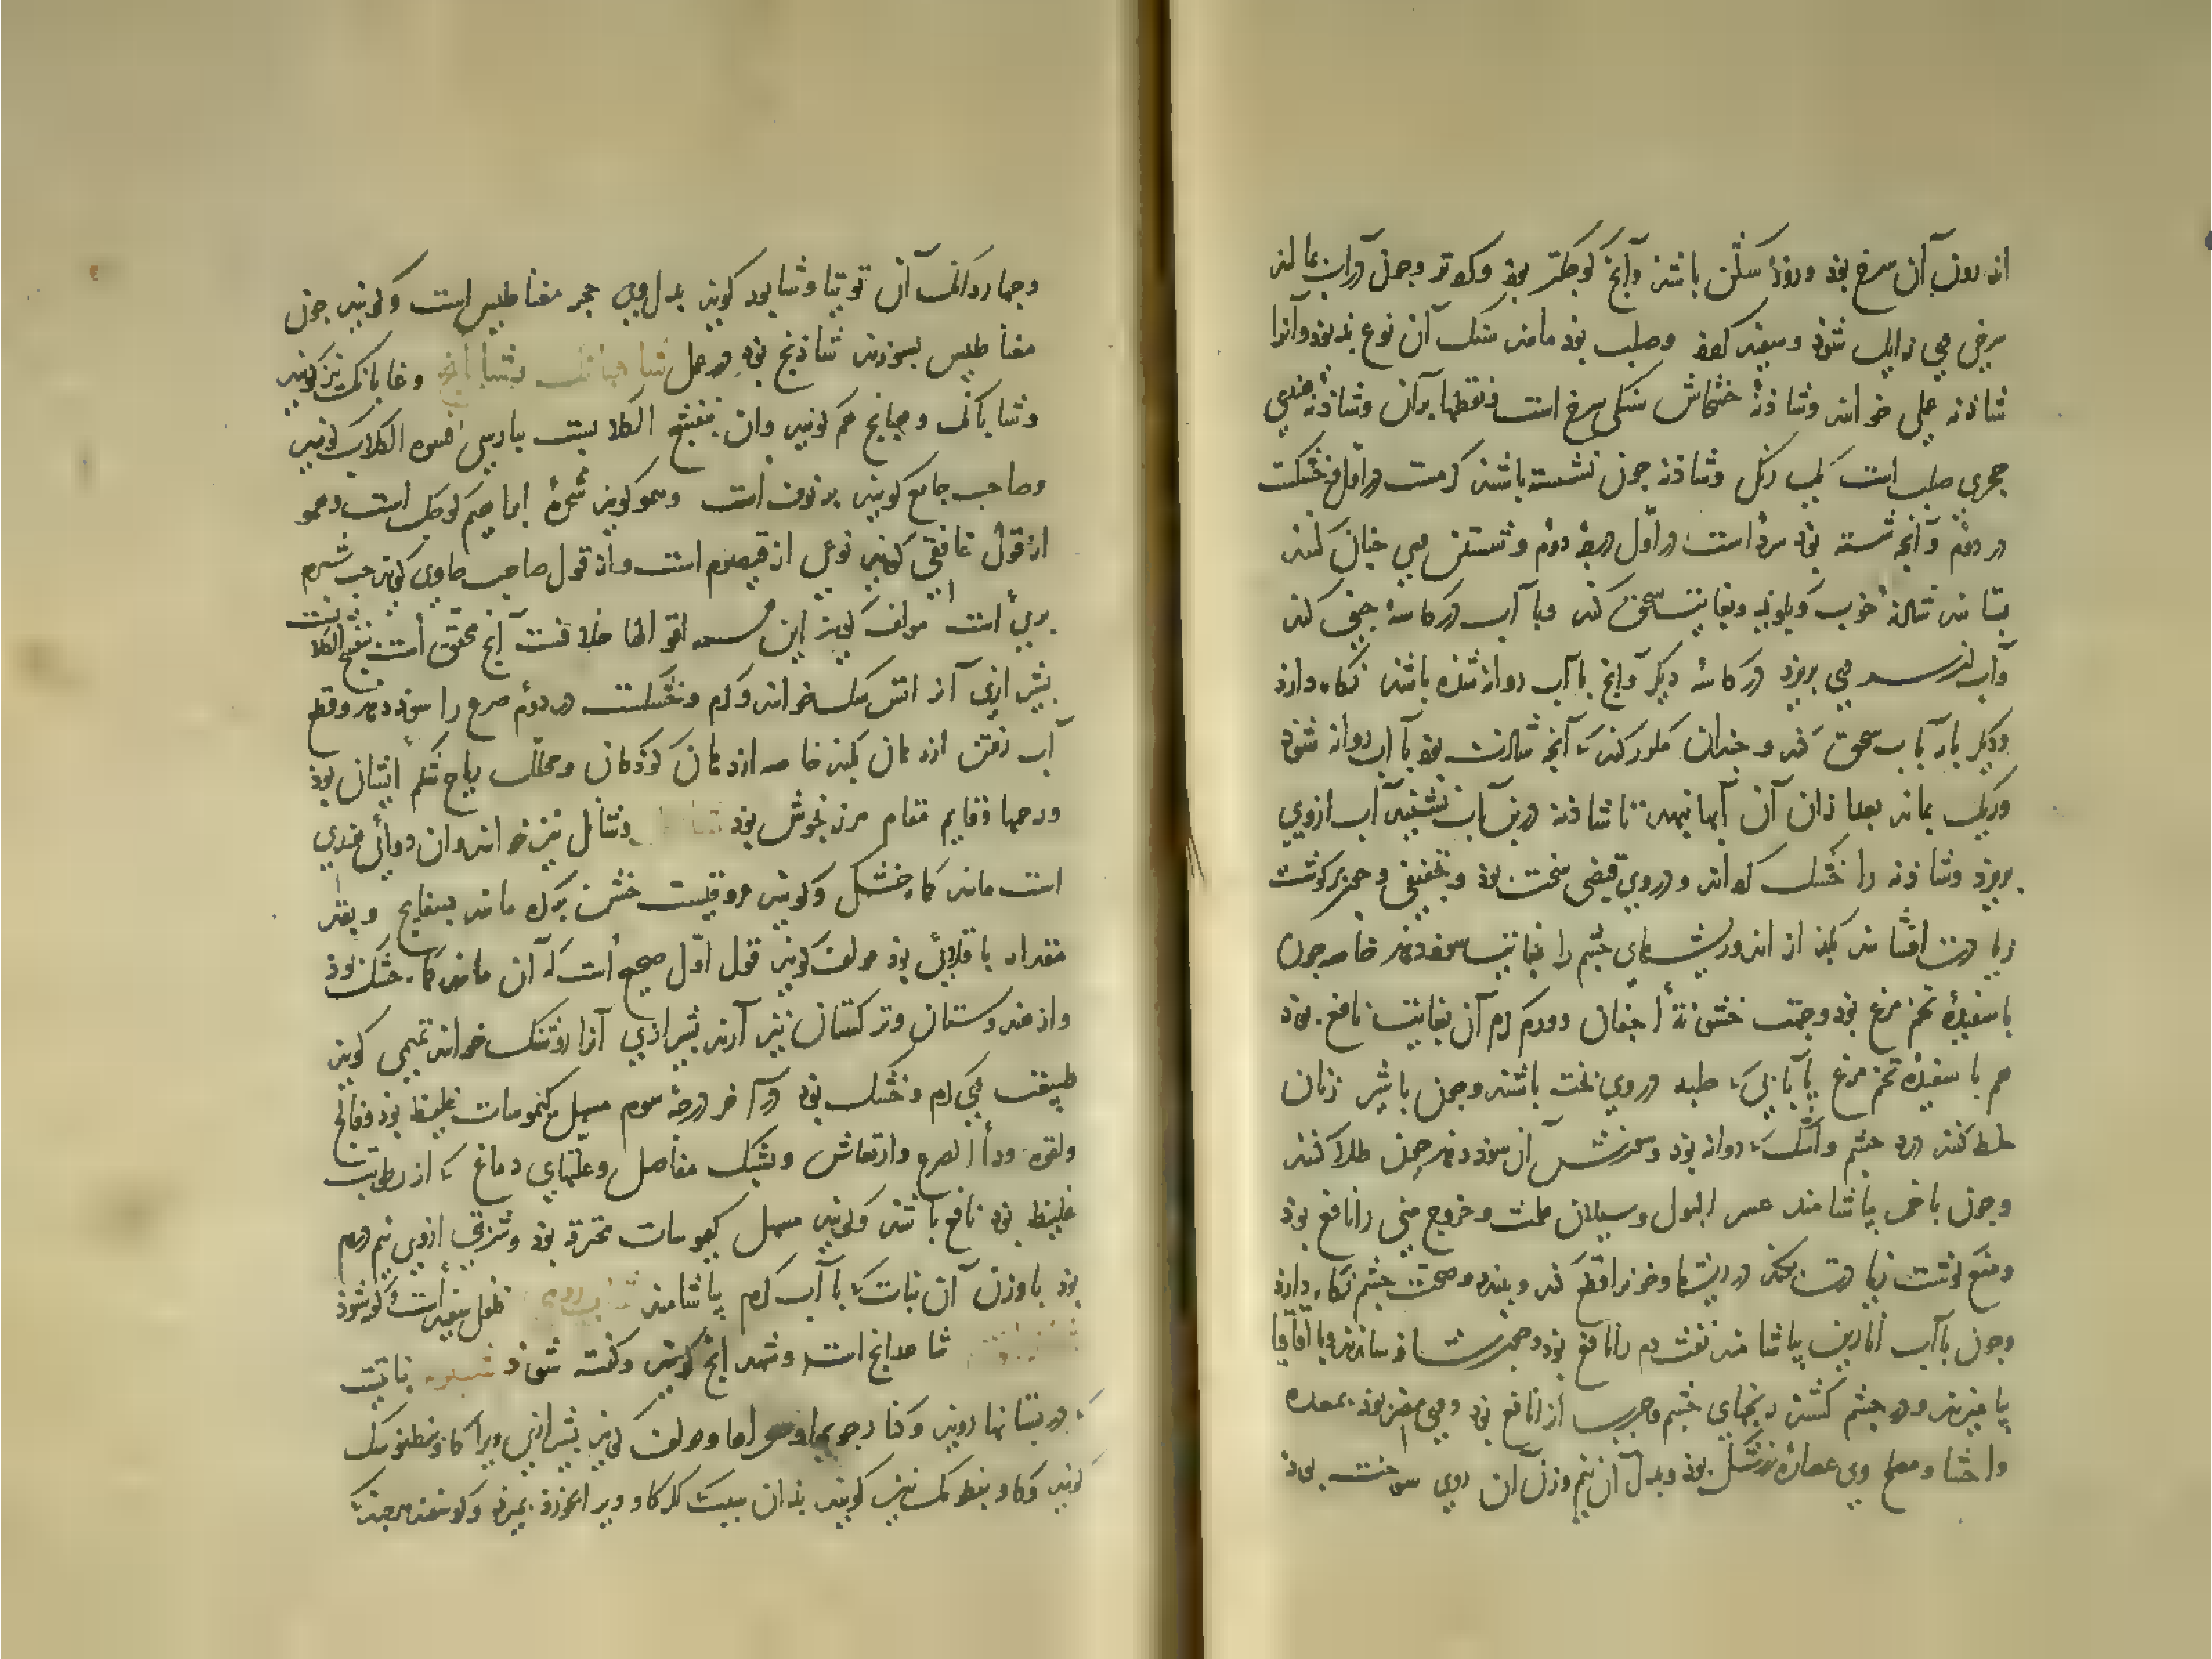 اندرون آن سرخ بود و زود شکن باشد و آنچ کوچکتر بود و کوتر و چون در آب بمالند
سرخی وی زایل شود و سفید گردد و صلب بود مانند سنگ آن نوع بد بود و آنرا
شاذنه جبلی خوانند و شاذنۀ خشخاش سنگی سرخ است و نقطها بر آن و شاذنۀ هندی
حجری صلب است یک رنگ و شاذنه چون نشسته باشند گرمست در اول و خشکست
در دوم و آنچه شسته بود سرد است در اول درجۀ دوم و شستن وی چنان کنند
بستانند شاذنۀ خوب و بکوبند و بغایت سحق کنند و با آب در کاسۀ چینی کنند
و آب از سر وی بریزد در کاسۀ دیگر و آنچ با آب روان شده باشد نگاه دارند
و دیگر بار با آب سحق کنند و چندان مکرر کنند که آنچه شاذنست بود با آب روانه شود
و ریگ بماند بعد از آن آن آبها بنهند تا شاذنه در بن آب نشیند آب از وی
بریزد و شاذنه را خشک گردانند و در وی قبضی سخت بود و تجفیفی و چون بر گوشت
زیادت افشانند بکند از اندرون ریشهای چشم را بغایت سود دهد خاصه چون
با سفیدۀ تخم مرغ بود و جهت خشونۀ اجفان و ورم گرم آن بغایت نافع بود
هم با سفیدۀ تخم مرغ یا آبی که حلبه در وی پخته باشند و چون با شیر زنان
خلط کنند درد چشم و اشک که روانه بود و سوزش آن سود دهد چون طلا کنند
و چون با خمر بیاشامند عسر البول و سیلان طمث و خروج منی را نافع بود
و منع گوشت زیادت بکند در ریشها و خونرا قطع کند و ببندد و صحت چشم نگاه دارد
و چون با آب انارین بیاشامند نفث دم را نافع بود و چون شیاف سازند و با اقاقیا
بیامیزند و در چشم کشند رنجهای چشم و جرب آنرا نافع بود و وی مضر بود بمعده
و احشا و مصلح وی عصارۀ زرشک بود و بدل آن نیم وزن آن روی سوخته بود
و چهار دانک آن توتیا و شابور گویند بدل وی حجر مغناطیس است و گویند چون
مغناطیس بسوزند شاذنج بود در عمل شاهبانک بشا و غابانک نیز گویند
و شابانک و جبانج هم گویند و آن بنفسج الکلابست بپارسی فسوه الکلاب گویند
و صاحب جامع گوید برنوف است و همو گوید شجرۀ ابراهیم کوچک است و همو
از قول غافقی گوید نوعی از قیصوم است و از قول صاحب حاوی گوید حب شبرم
بری است مولف گوید این همه اقوالها خلافست آنچ محقق است بنفسج الکلابست
بشیرازی آنرا انش سگ خوانند و گرم و خشکست در دوم صرع را سود دهد و قطع
آب رفتن از دهان بکند خاصه از دهان کودکان و محلل ریاح شکم ایشان بود
و رحمها و قایم مقام مرزنجوش بود و شنانل نیز خوانند و آن دوائی هندی
است مانند کماه خشک و گویند عروقیست خشن بزرگ مانند بسفایج و بقدر
مقدار باقلائی بود مولف گوید قول اول صحیح است که آن مانند کماه خشک بود
و از هندوستان و ترکستان نیز آرند بشیرازی آنرا روشنک خوانند تمیمی گوید
طبیعت وی گرم و خشک بود در آخر درجۀ سوم مسهل کیموسات غلیظ بود و فالج
و لقوه و داء الصرع و ارتعاش و تشبک مفاصل و علتهای دماغ که از رطوبت
غلیظ بود نافع باشد و گویند مسهل کیموسات محترقه بود و شربتی از وی نیم درم
بود با وزن آن نبات که با آب گرم بیاشامند فلفل سفیدست گفته شود
شاهدانج است و شهدانج گویند و گفته شود نباتیست
که در بستانها روید و کنار جویها و مولف گوید بشیرازی ویرا کاو منطوسک
گویند و کاو بنطوسک نیز گویند بدان سبب که اگر گاو ویرا بخورد بمیرد و گوسفند هرچند که